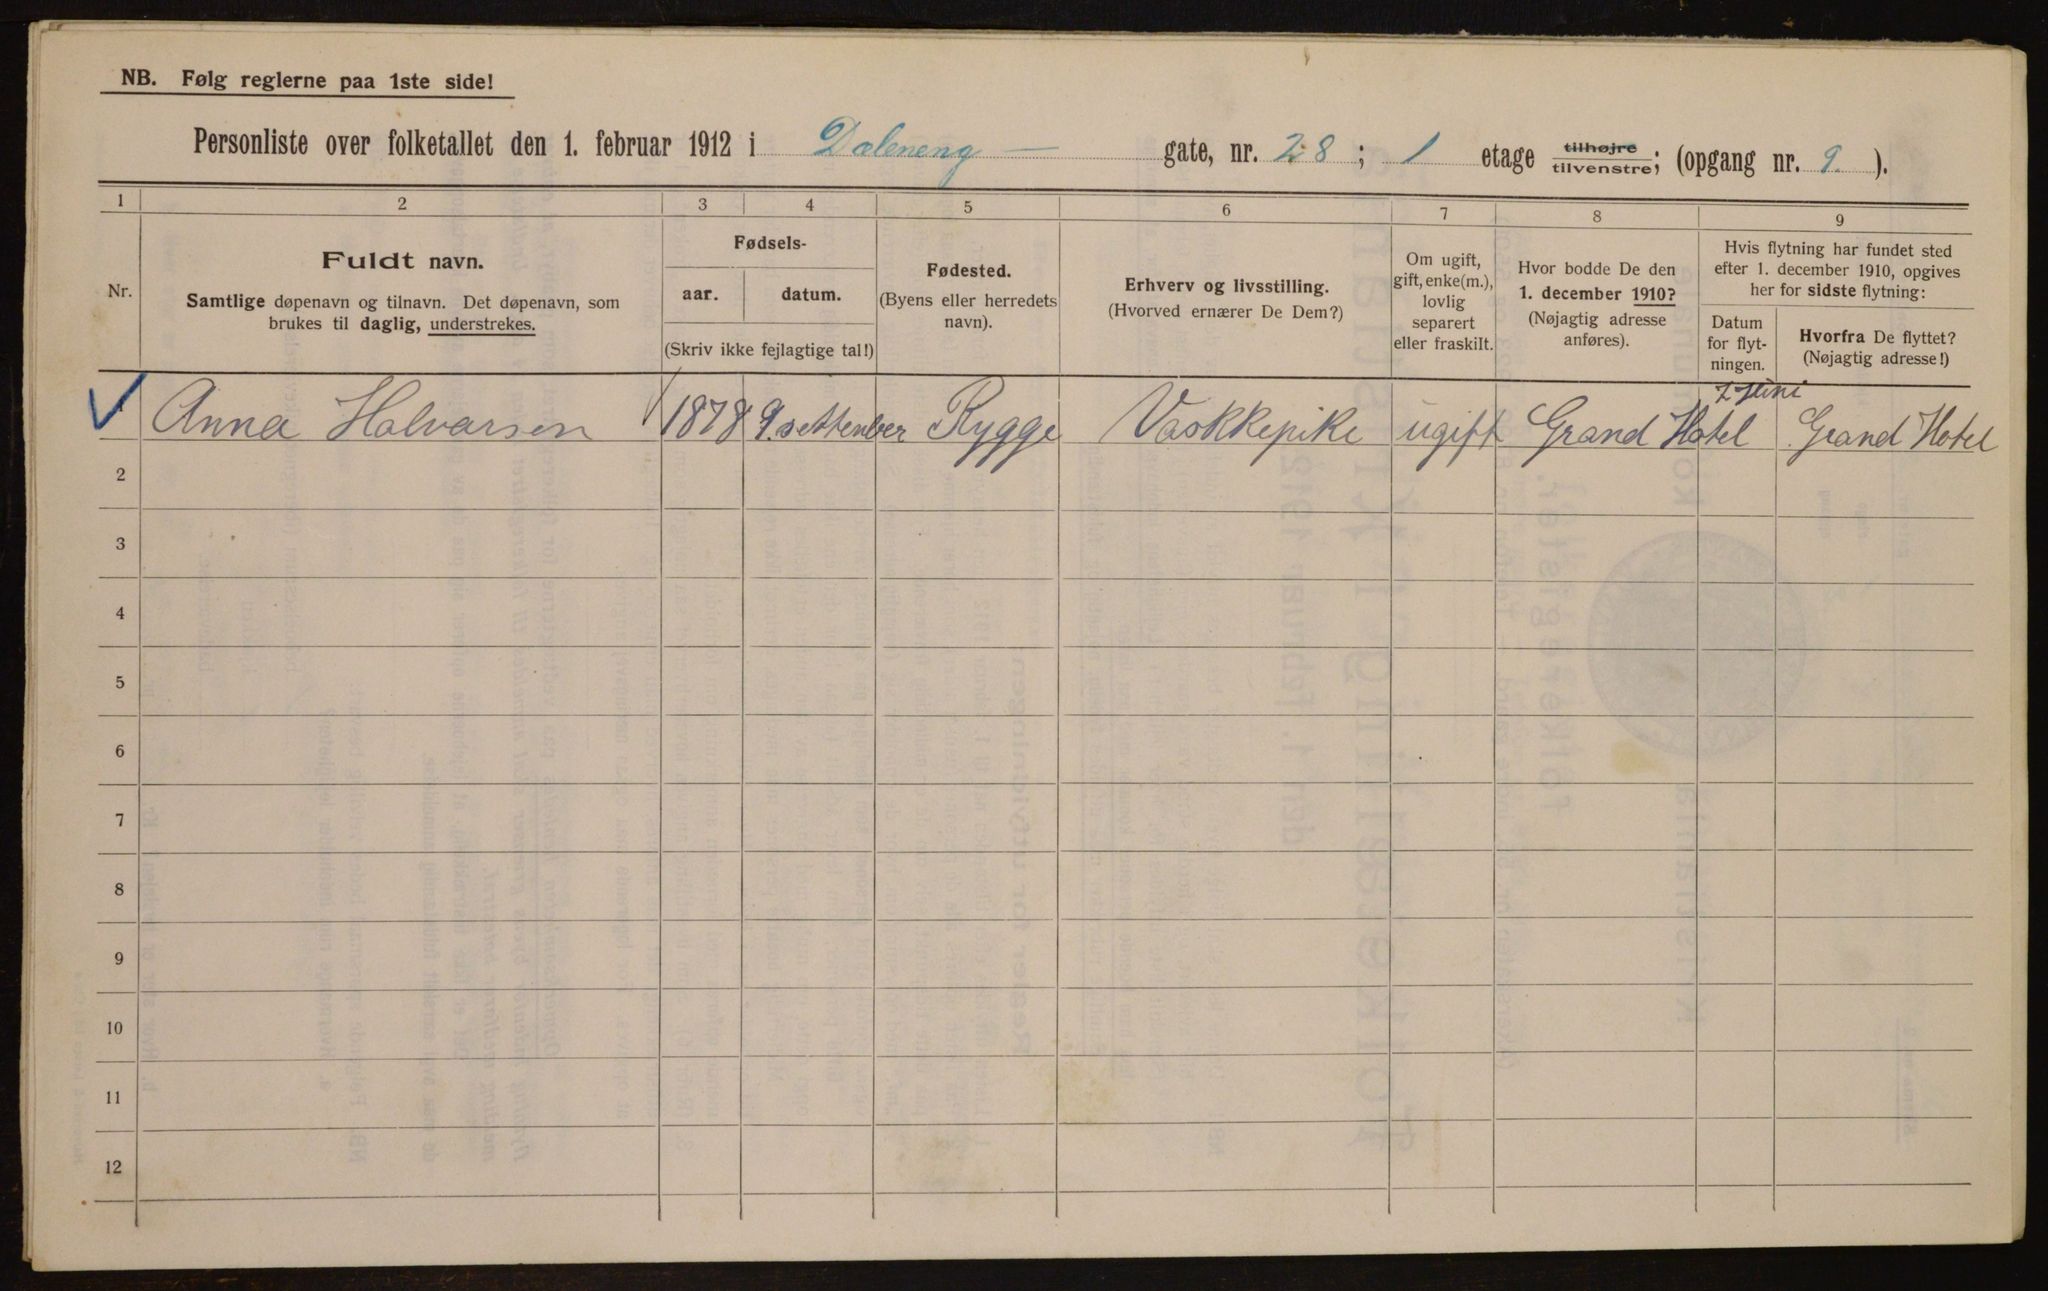 NB. Følg reglerne paa 1ste side!
Personliste over folketallet den 1. februar 1912 i Dæleneng — gate, nr. 28 ; 1 etage tilhøjre tilvenstre; (opgang nr. 9. ).
1 2 3 4 5 6 7 8 9
Nr.
Fuldt navn.
Samtlige døpenavn og tilnavn. Det døpenavn, som
brukes til daglig, understrekes.
Fødsels-
aar. datum.
(Skriv ikke fejlagtige tal!)
Fødested.
(Byens eller herredets
navn).
Erhverv og livsstilling.
(Hvorved ernærer De Dem?)
Om ugift,
gift, enke(m.),
lovlig
separert
eller fraskilt.
Hvor bodde De den
1. december 1910?
(Nøjagtig adresse
anføres).
Hvis flytning har fundet sted
efter 1. december 1910, opgives
her for sidste flytning:
Datum
for flyt-
ningen.
Hvorfra De flyttet?
(Nøjagtig adresse!)
Juni
Anna Halvarsen 1878 9. settenber Rygge Vaskkepike ugift Grand Hotel Grand Hotel
2
3
4
5
6
7
8
9
10
11
12